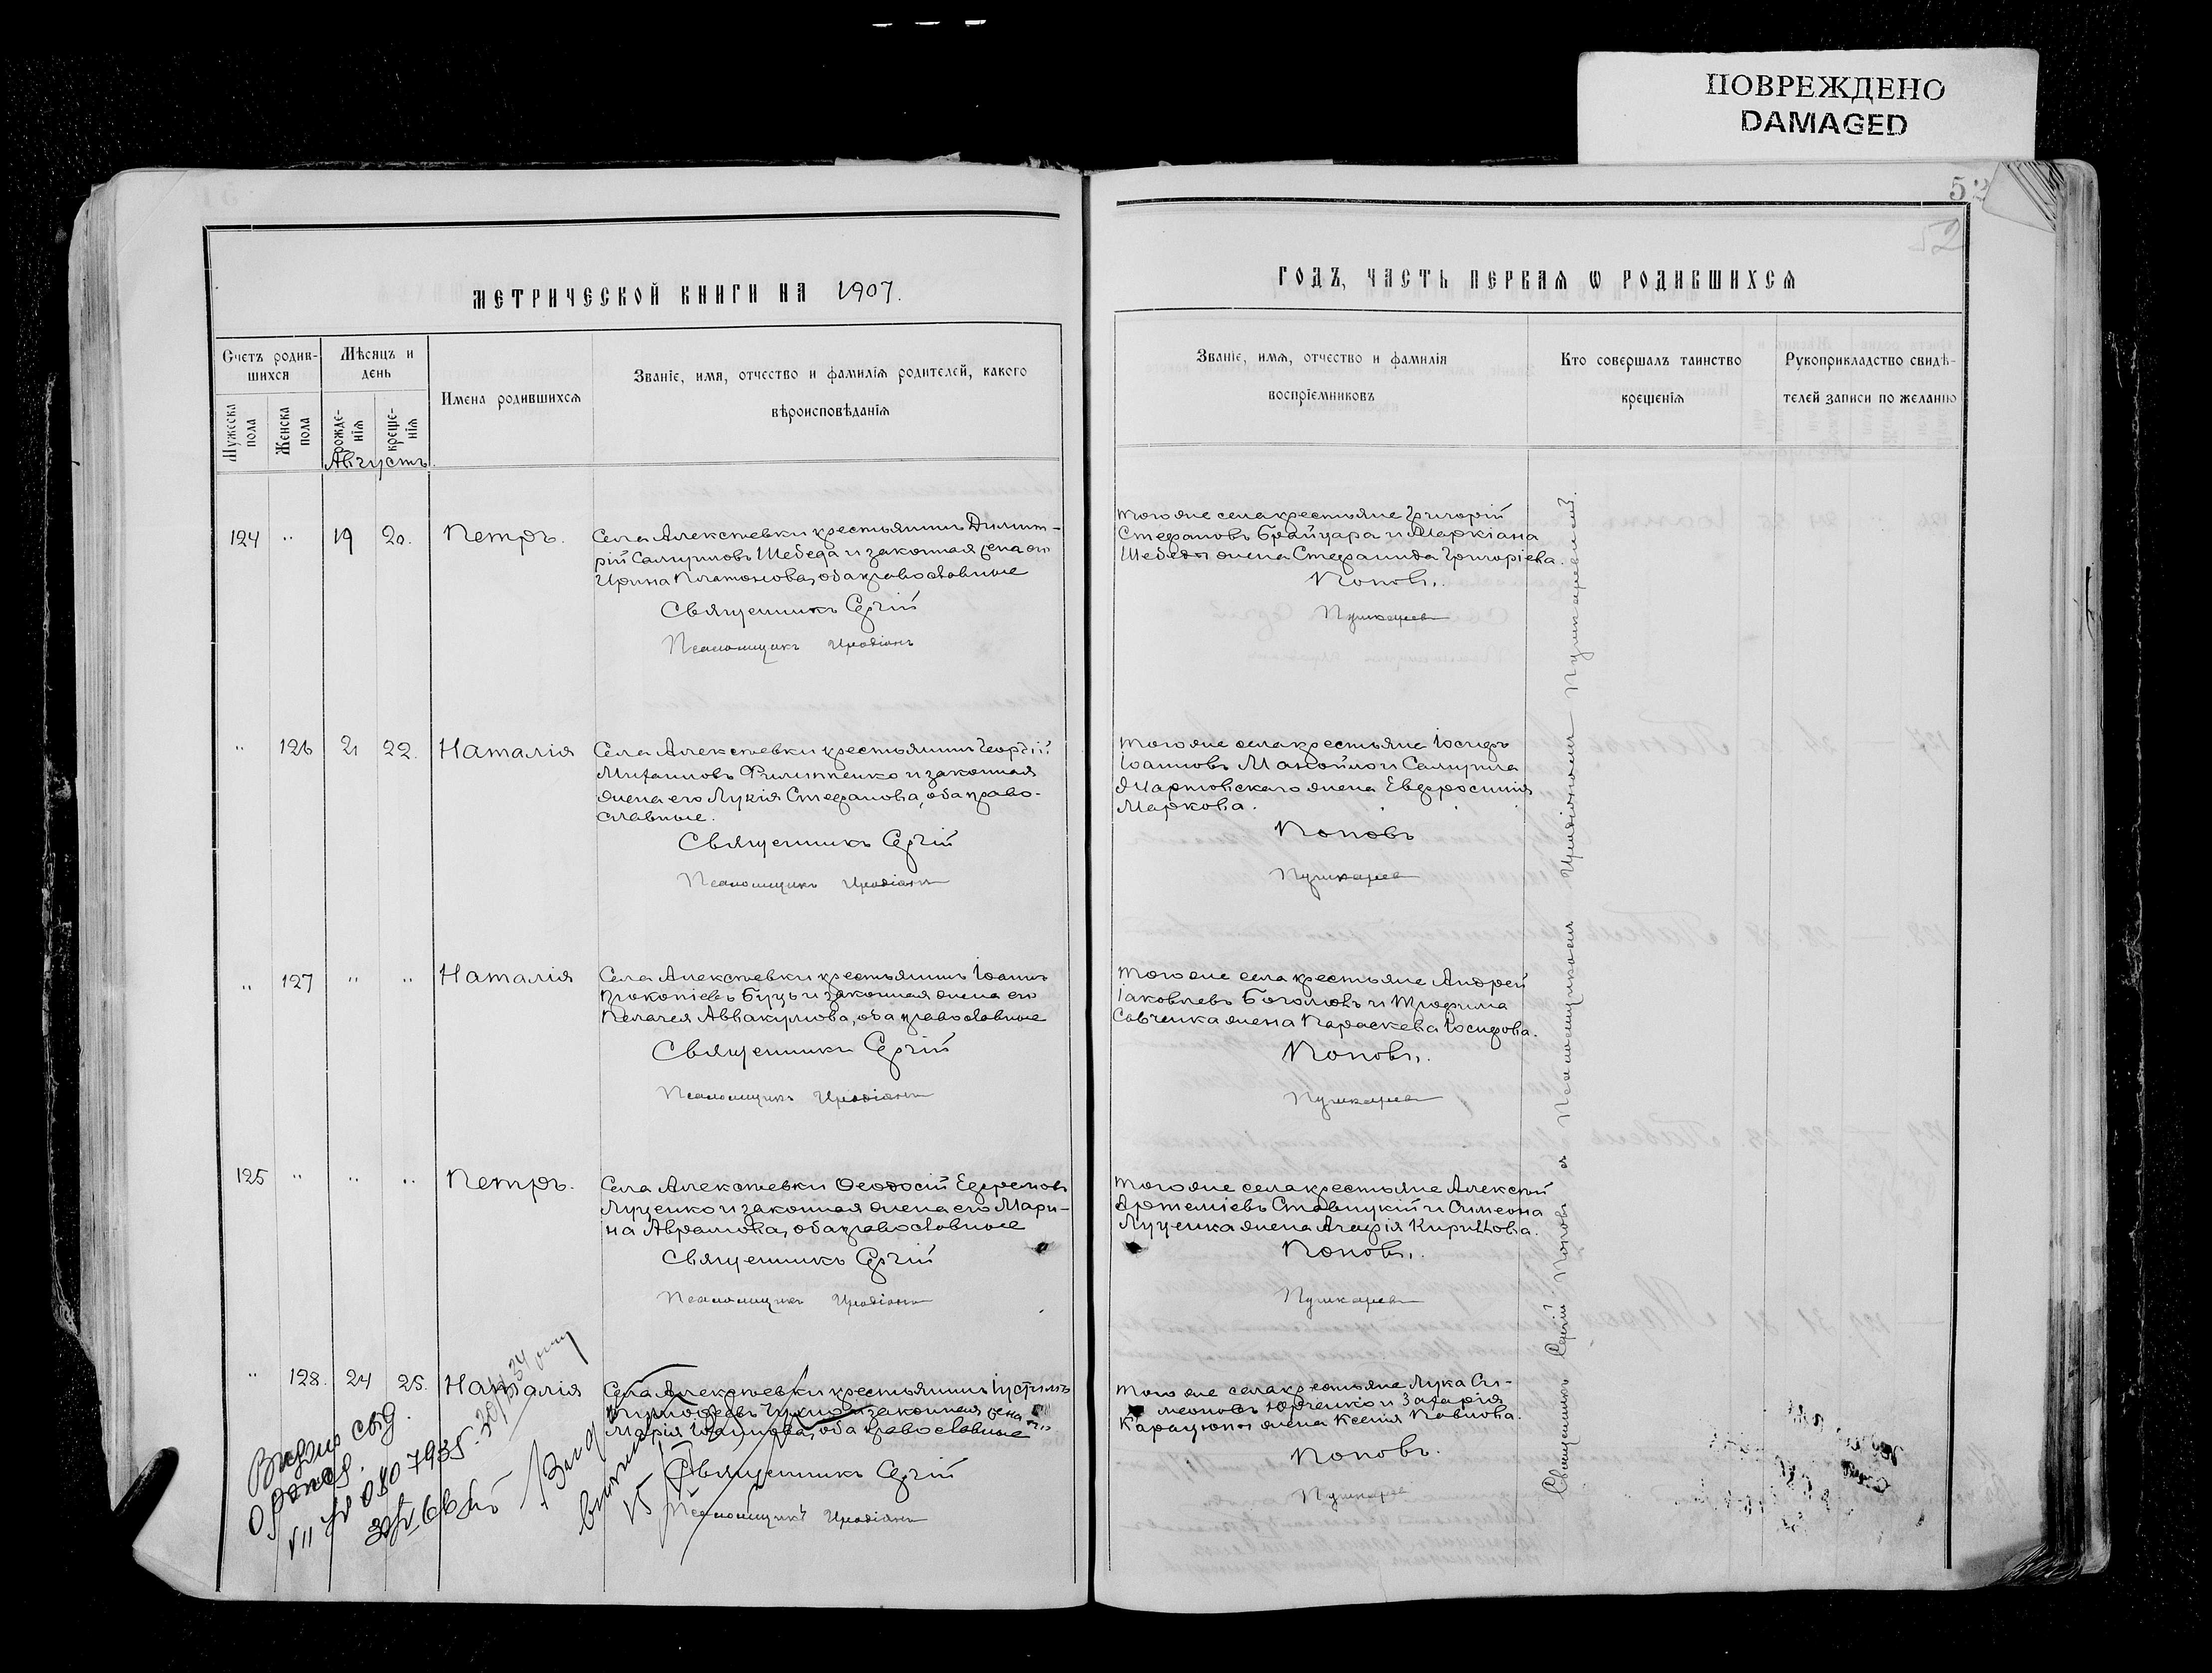 ПОВРЕЖДЕНО
DAMAGED
52
52
МЕТРИЧЕСКОЙ КНИГИ НА 1907.
ГОДЪ, ЧАСТЬ ПЕРВАЯ Ѡ РОДИВШИХСЯ
Счетъ родив-
шихся
Мѣсяцъ и
день
Мужеска
пола
Женска
пола
рожде-
нія
креще-
нія
Имена родившихся
Званіе, имя, отчество и фамилія родителей, какого
вѣроисповѣданія
Званіе, имя, отчество и фамилія
воспріемниковъ
Кто совершалъ таинство
крещенія
Рукоприкладство свидѣ-
телей записи по желанію
Августъ.
124 " 19 20. Петръ.
Села Алексѣевки крестьянинъ Димит-
рій Самуиловъ Шебеда и законная жена его
Ирина Платонова, оба православные
Священникъ Сергій
Псаломщикъ Иродіонъ
того же села крестьяне Григорій
Стефановъ Брайцара и Маркіана
Шебеды жена Стефанида Григоріева.
Поповъ.
Пушкарев
" 126 21 22. Наталія
Села Алексѣевки крестьянинъ Георгій
Михаиловъ Филиппенко и законная
жена его Лукія Стефанова, оба право-
славные.
Священникъ Сергій
Псаломщикъ Иродіонъ
того же села крестьяне Іосифъ
Іоанновъ Манойло и Самуила
Мартовскаго жена Евфросинія
Маркова.
Поповъ
Пушкарев
" 127 " " Наталія
Села Алексѣевки крестьянинъ Іоаннъ
Прокопіевъ Буцъ и законная жена его
Пелагея Аввакумова, оба православные
Священникъ Сергій
Псаломщикъ Иродіонъ
того же села крестьяне Андрей
Іаковлевъ Боголюбъ и Трофима
Савченка жена Параскева Іосифова.
Поповъ.
Пушкарев
125 " " " Петръ.
Села Алексѣевки Ѳеодосій Ефремовъ
Луценко и законная жена его Мари-
на Аврамова, оба православные
Священникъ Сергій
Псаломщикъ Иродіонъ
того же села крестьяне Алексѣй
Артеміевъ Ставицкій и Симеона
Луценка жена Агафія Кириллова.
Поповъ.
Пушкарев
" 128. 24 25. Наталія
Села Алексѣевки крестьянинъ Іустинъ
законная жена его
Марія Іоаннова, оба православные
Священникъ Сергій
Псаломщикъ Иродіонъ
того же села крестьяне Лука Си-
меоновъ Юрченко и Захарія
жена Ксенія Павлова.
Поповъ.
Пушкарев
Священникъ Сергій Поповъ съ Псаломщикомъ Иродіономъ Пушкаревымъ.